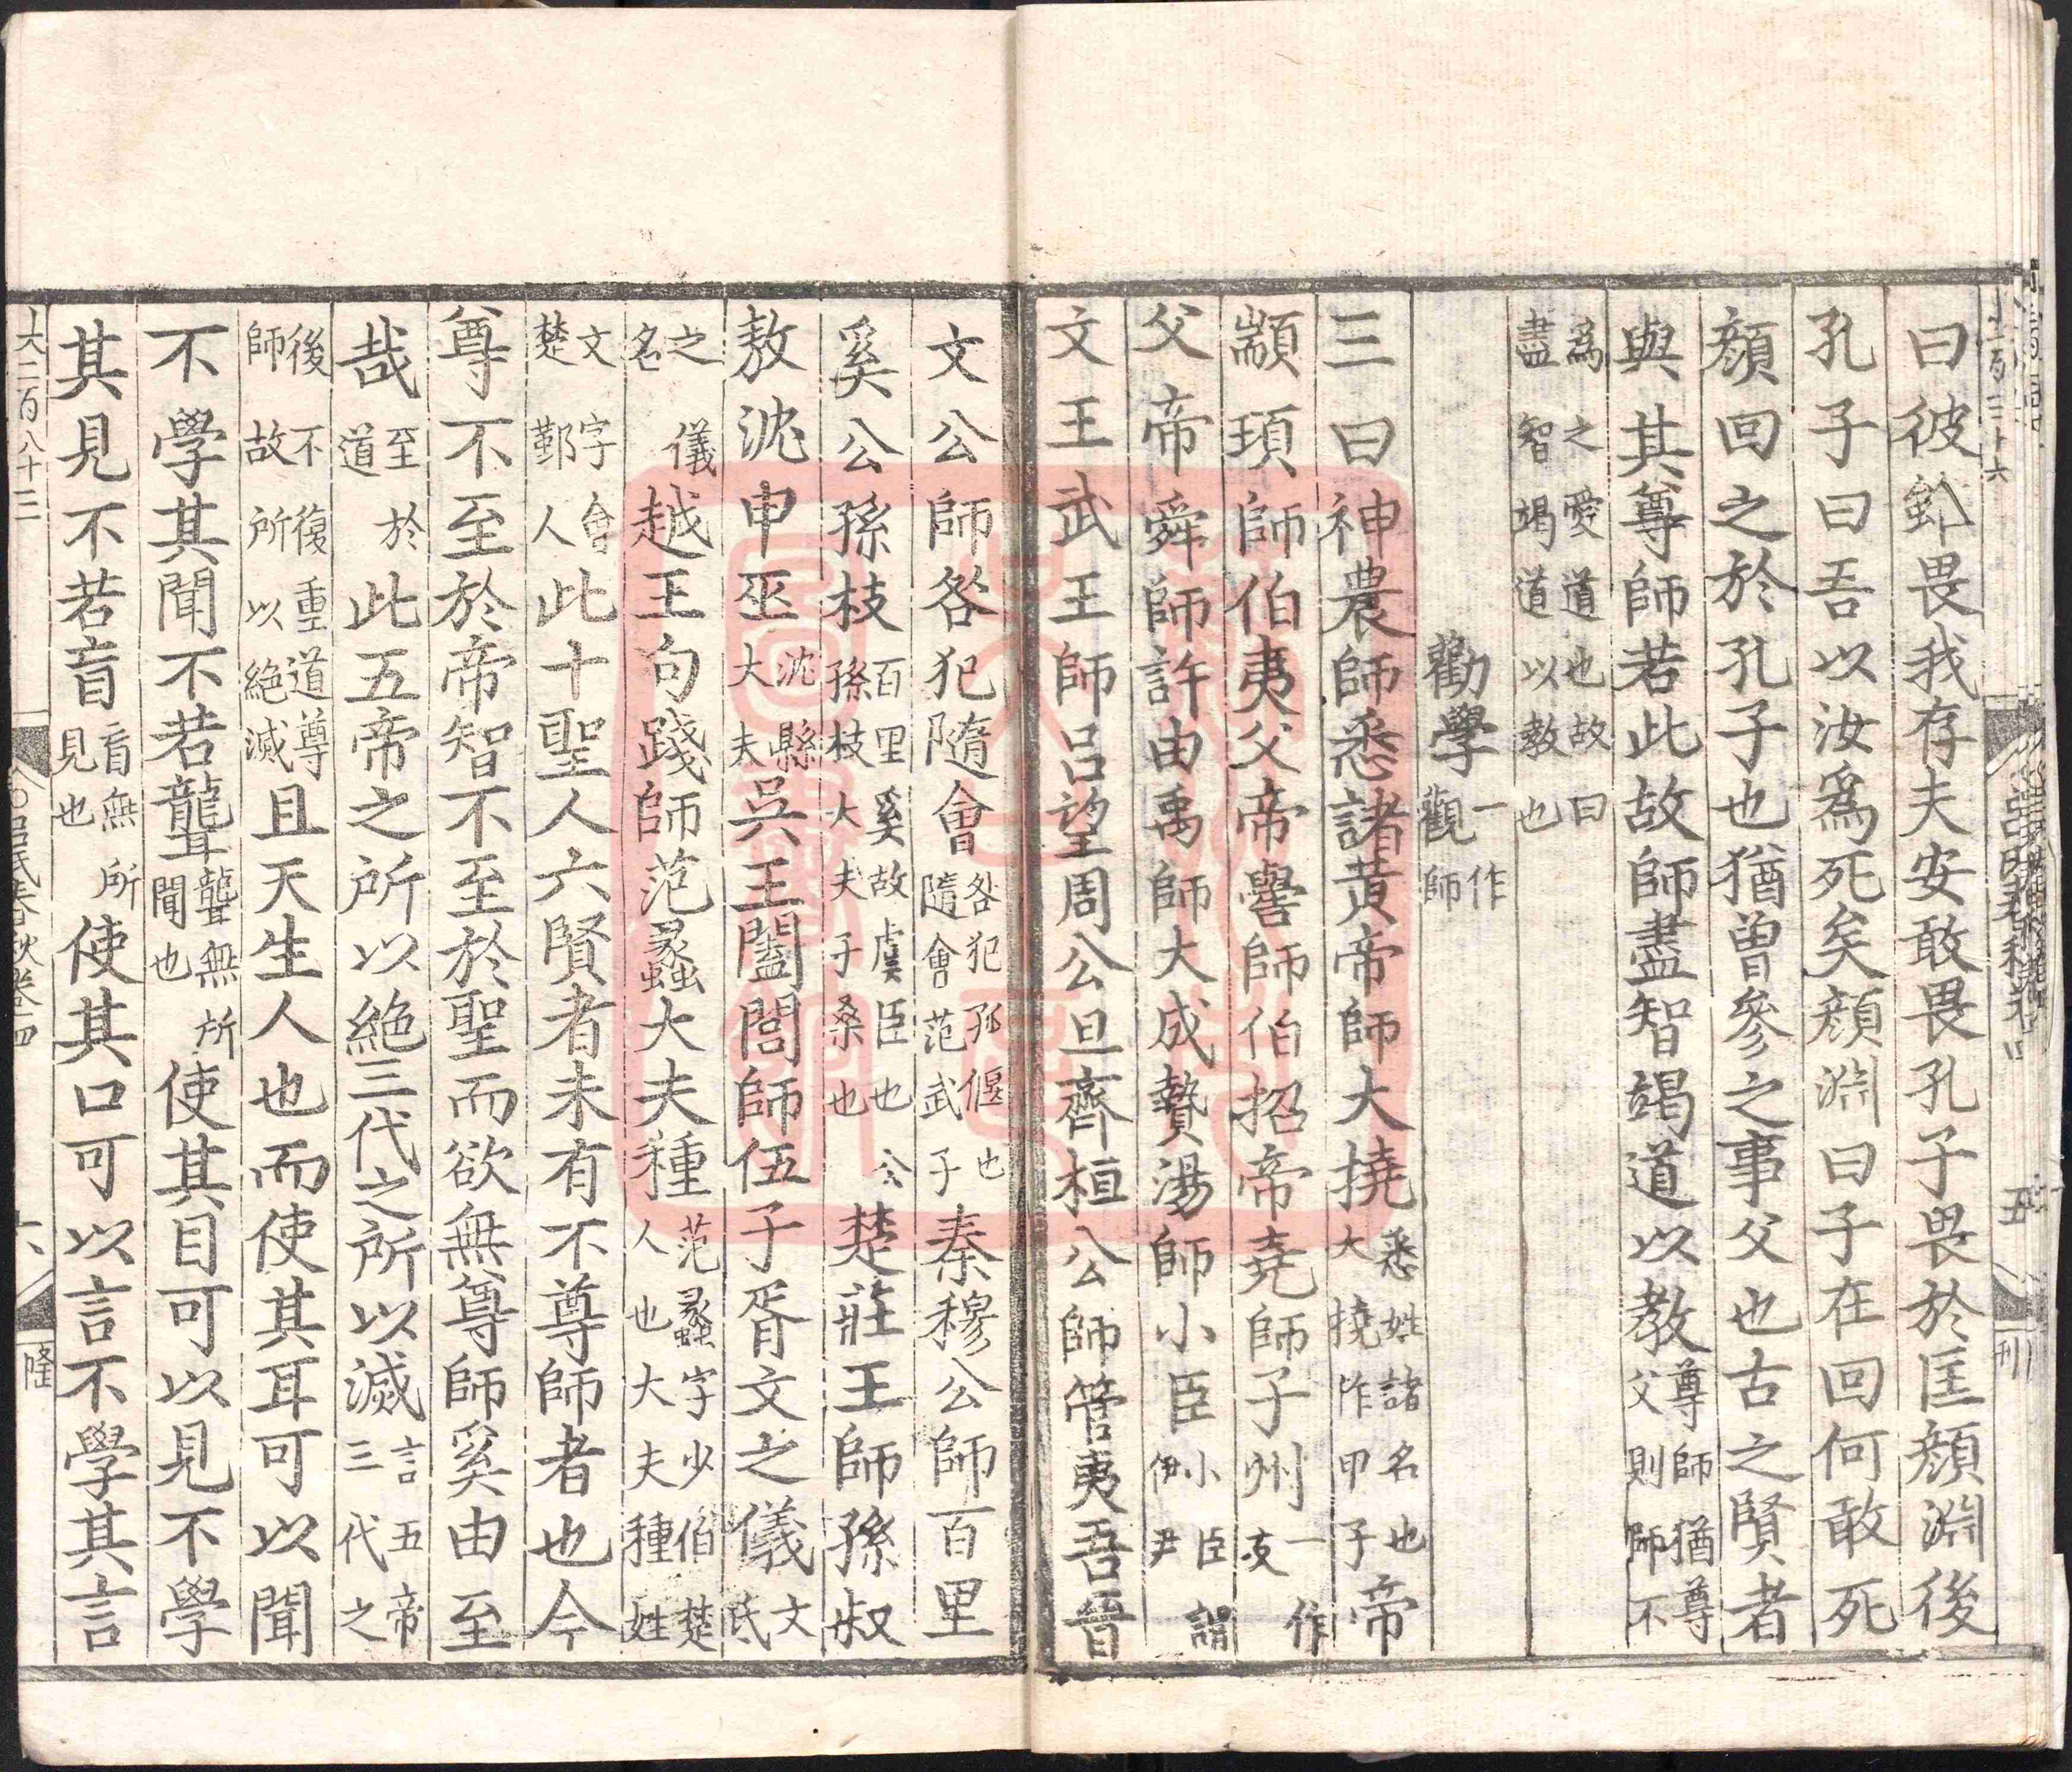 曰彼雖畏我存夫安敢畏孔子畏於匡顔淵後
孔子曰吾以汝爲死矣顔淵曰子在回何敢死
顔回之於孔子也猶曾參之事父也古之賢者
與其尊師若此故師盡智竭道以教尊師猶尊父則師不
爲之愛道也故曰盡智竭道以教也
勸學一作觀師
三曰神農師悉諸黃帝師大撓悉姓諸名也大撓作甲子帝
顓頊師伯夷父帝嚳師伯招帝堯師子州一作支
父帝舜師許由禹師大成贄湯師小臣小臣謂伊尹
文王武王師呂望周公旦齊桓公師管夷吾晉
文公師咎犯隨會咎犯狐偃也隨會范武子秦穆公師百里
奚公孫枝百里奚故虞臣也今孫枝大夫子桑也楚莊王師孫叔
敖沈申巫沈縣大夫吳王闔閭師伍子胥文之儀文氏
之儀名越王句踐師范蠡大夫種范蠡字少伯楚人也大夫種姓
文字會楚鄞人此十聖人六賢者未有不尊師者也今
尊不至於帝智不至於聖而欲無尊師奚由至
哉至於道此五帝之所以絕三代之所以滅言五帝三代之
後不復重道尊師故所以絕滅且天生人也而使其耳可以聞
不學其聞不若聾聾無所聞也使其目可以見不學
其見不若盲盲無所見也使其口可以言不學其言
大二百八十三
呂氏春秋卷四
六
隆
五
刊